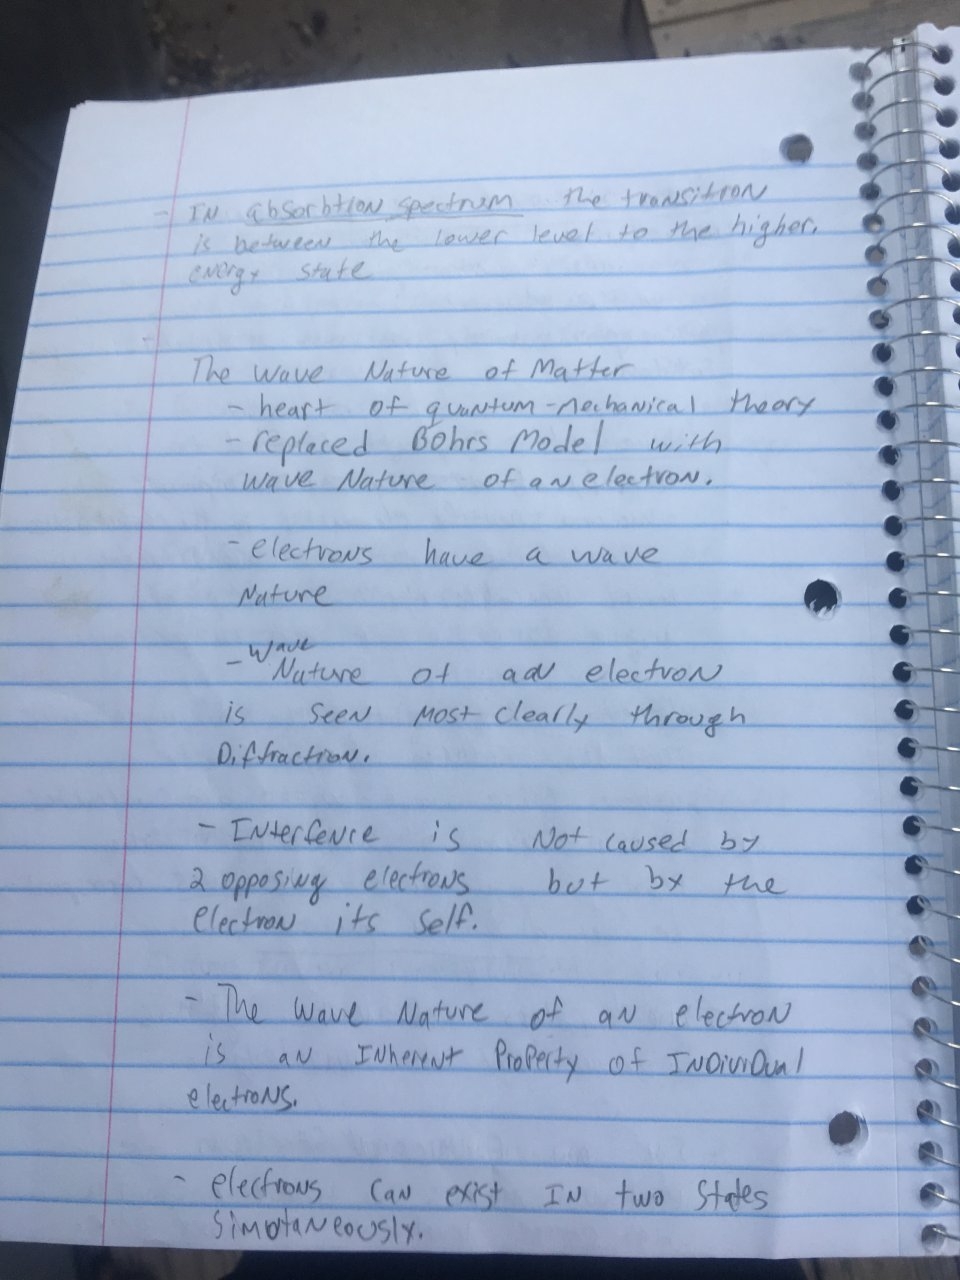 - IN absorbtion spectrum the transition
is between the lower level to the higher.
energy state
The wave Nature of Matter
- heart of quantum-mechanical theory
- replaced Bohrs Model with
wave Nature of an electron.
- electrons have a wave
Nature
- Wave
Nature of aan electron
is seen most clearly through
Diffraction.
- Interfence is Not caused by
2 opposing electrons but by the
electron its self.
- The wave Nature of an electron
is an INherent Property of INDiviDual
electrons.
- electrons can exist IN two States
simotaneously.